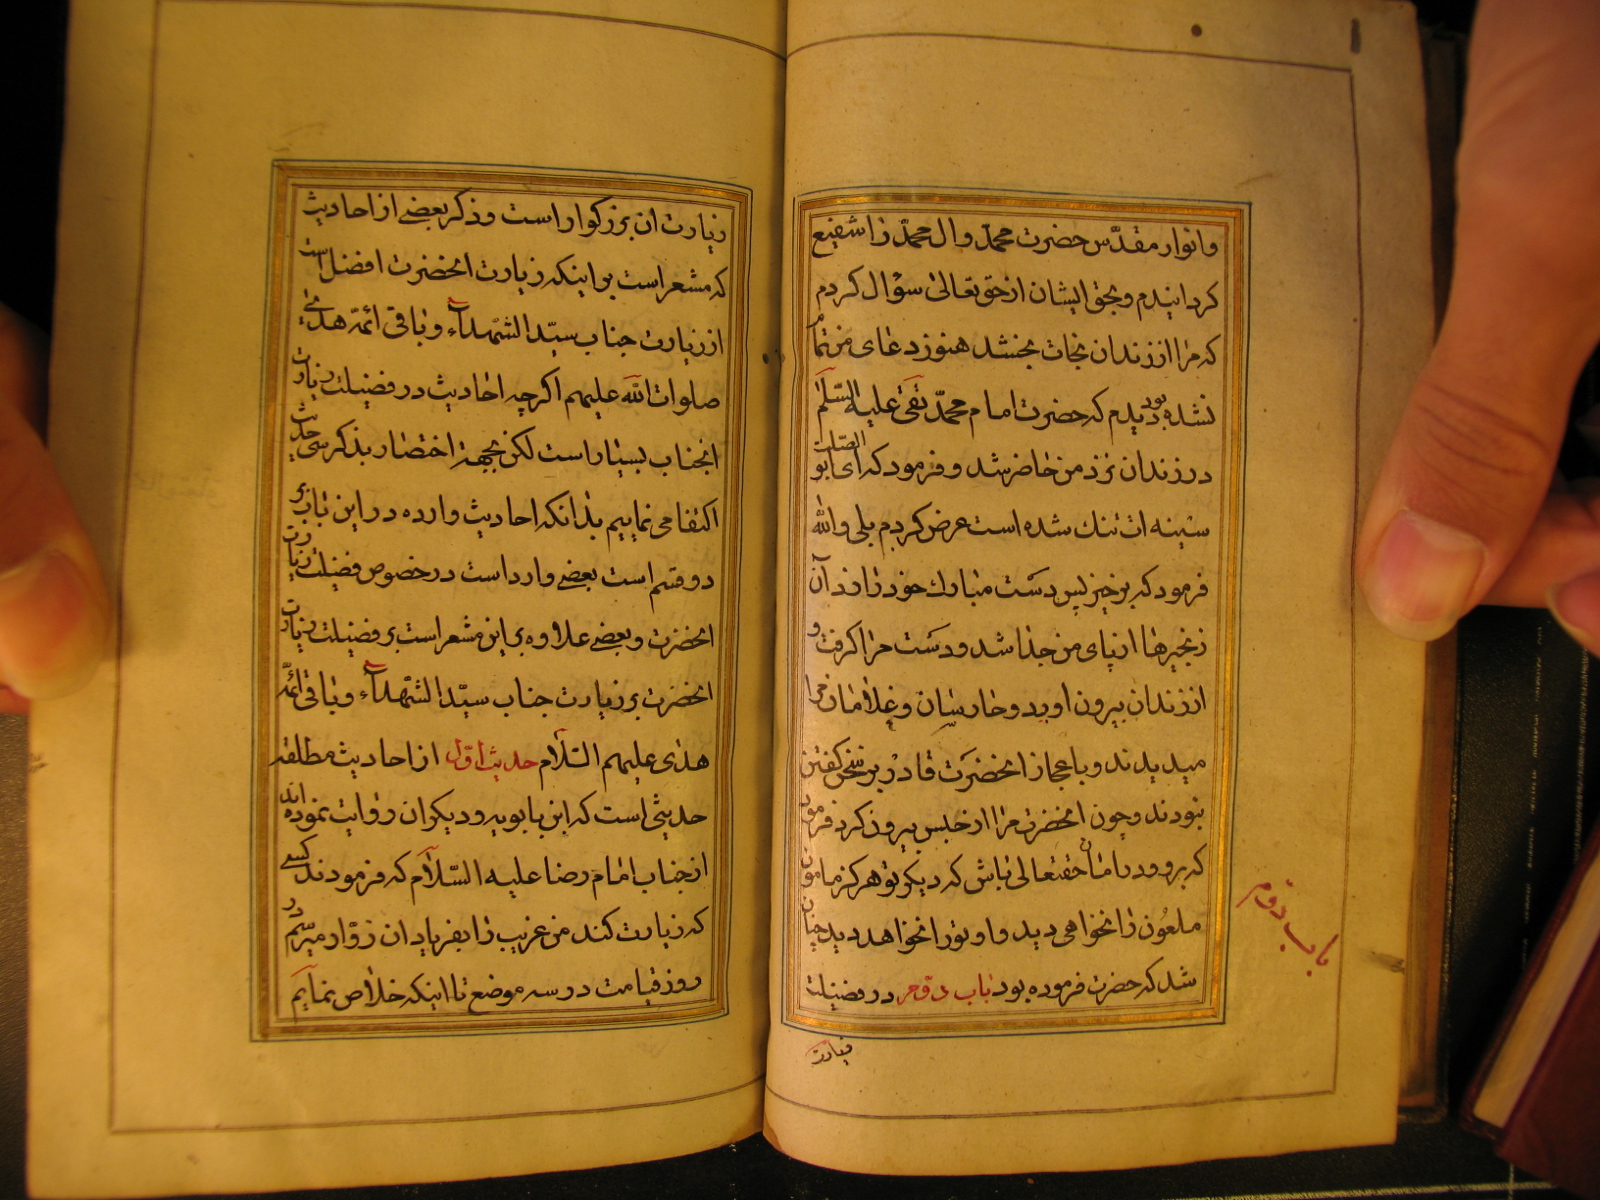 وانوار مقدّس حضرت محمّد وال محمّد را شفیع
کردانیدم وبحق ایشان از حق تعالی سؤال کردم
که مرا از زندان نجات بخشد هنوز دعای من تمام
نشده بود دیدم که حضرت امام محمّد تقی علیه السّلام
در زندان نزد من حاضر شد و فرمود که ای ابو الصّلت
سینه ات تنك شده است عرض کردم بلی والله
فرمود که برخیز پس دست مبارك خود را زد آن
زنجیرها از پای من جدا شد و دست مرا کرفت و
از زندان بیرون اورد وحارسان وغلامان مرا
میدیدند و باعجاز انحضرت قادر بر سخن کفتن
نبودند وچون انحضرت مرا از حبس بیرون کرد فرمود
که برو در امان حقتعالی باش که دیکر تو هرکز مامون
ملعون را نخواهی دید و او تو را نخواهد دید چنان
شد که حضرت فرموده بود باب دوّم در فضیلت
زیارت
باب دوّم
زیارت ان بزرکوار است وذکر بعضے از احادیث
که مشعر است بر اینکه زیارت انحضرت افضل است
از زیارت جناب سیّد الشّهداء و باقی ائمّه هدی
صلوات الله علیهم اکرچه احادیث در فضیلت زیارت
انجناب بسیار است لکن بجهة اختصار بذکر سی حدیث
اکتفا می نماییم بدانکه احادیث وارده در این باب بر
دو قسم است بعضے وارد است در خصوص فضیلت زیارت
انحضرت و بعضے علاوه بر این مشعر است بر فضیلت زیارت
انحضرت بر زیارت جناب سیّد الشّهداء و باقی ائمّه
هدی علیهم السّلام حدیث اوّل از احادیث مطلقه
حدیثی است که ابن بابویه و دیکران روایت نموده اند
از جناب امام رضا علیه السّلام که فرمودند کسے
که زیارت کند من غریب را بفریاد ان زوّار میرسم در
روز قیامت در سه موضع تا اینکه خلاص نمایم